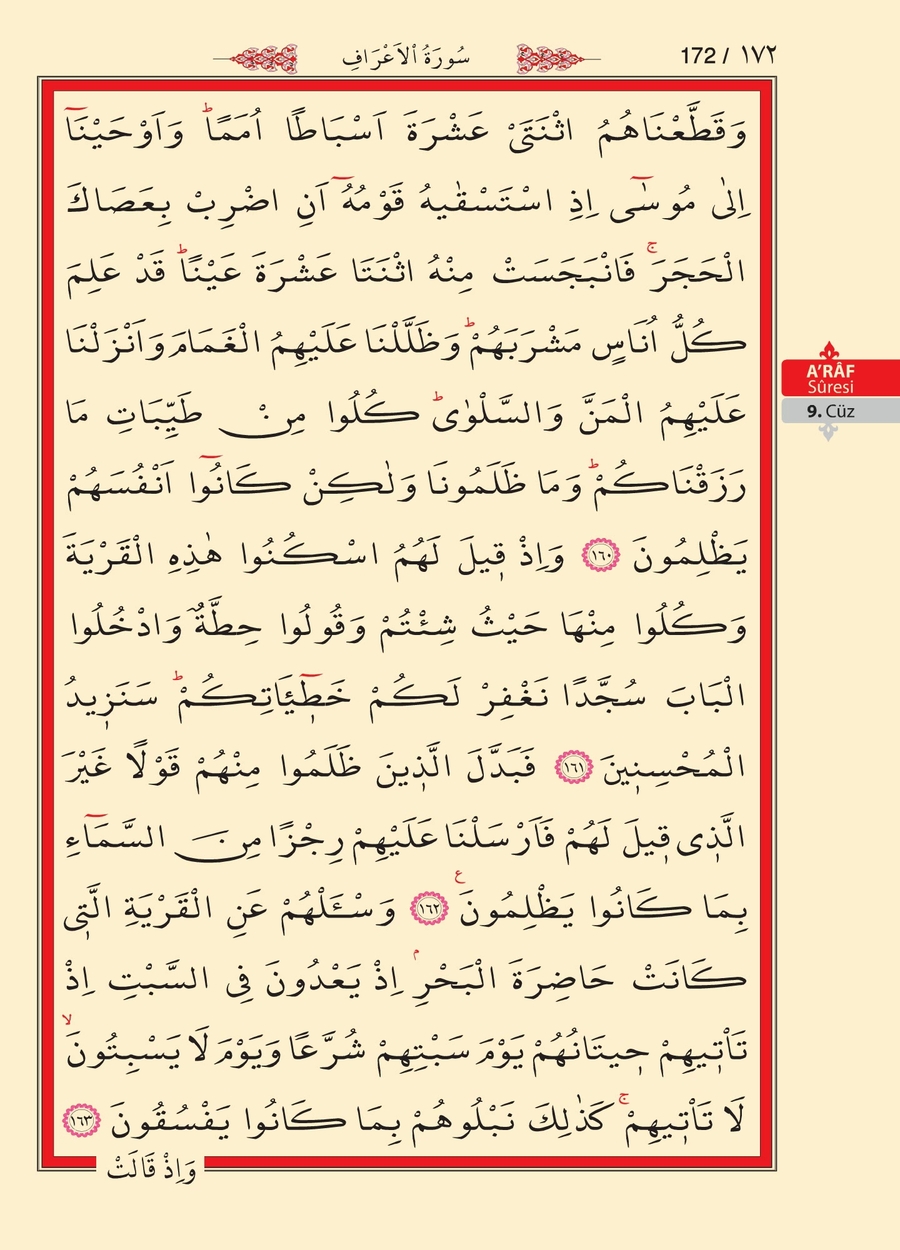 172 / ١٧٢
سُورَةُ الْاَعْرَافِ
وَقَطَّعْنَاهُمُ اثْنَتَىْ عَشْرَةَ اَسْبَاطًا اُمَمًاۜ وَاَوْحَيْنَٓا
اِلٰى مُوسٰٓى اِذِ اسْتَسْقٰيهُ قَوْمُهُٓ اَنِ اضْرِبْ بِعَصَاكَ
الْحَجَرَۚ فَانْبَجَسَتْ مِنْهُ اثْنَتَا عَشْرَةَ عَيْنًاۜ قَدْ عَلِمَ
كُلُّ اُنَاسٍ مَشْرَبَهُمْۜ وَظَلَّلْنَا عَلَيْهِمُ الْغَمَامَ وَاَنْزَلْنَا
عَلَيْهِمُ الْمَنَّ وَالسَّلْوٰىۜ كُلُوا مِنْ طَيِّبَاتِ مَا
رَزَقْنَاكُمْۜ وَمَا ظَلَمُونَا وَلٰكِنْ كَانُٓوا اَنْفُسَهُمْ
يَظْلِمُونَ ﴿١٦٠﴾ وَاِذْ ق۪يلَ لَهُمُ اسْكُنُوا هٰذِهِ الْقَرْيَةَ
وَكُلُوا مِنْهَا حَيْثُ شِئْتُمْ وَقُولُوا حِطَّةٌ وَادْخُلُوا
الْبَابَ سُجَّدًا نَغْفِرْ لَكُمْ خَط۪ٓيـَٔاتِكُمْۜ سَنَز۪يدُ
الْمُحْسِن۪ينَ ﴿١٦١﴾ فَبَدَّلَ الَّذ۪ينَ ظَلَمُوا مِنْهُمْ قَوْلًا غَيْرَ
الَّذ۪ى ق۪يلَ لَهُمْ فَاَرْسَلْنَا عَلَيْهِمْ رِجْزًا مِنَ السَّمَٓاءِ
بِمَا كَانُوا يَظْلِمُونَ۟ ﴿١٦٢﴾ وَسْـَٔلْهُمْ عَنِ الْقَرْيَةِ الَّت۪ى
كَانَتْ حَاضِرَةَ الْبَحْرِۢ اِذْ يَعْدُونَ فِى السَّبْتِ اِذْ
تَأْت۪يهِمْ ح۪يتَانُهُمْ يَوْمَ سَبْتِهِمْ شُرَّعًا وَيَوْمَ لَا يَسْبِتُونَۙ
لَا تَأْت۪يهِمْۚ كَذٰلِكَ نَبْلُوهُمْ بِمَا كَانُوا يَفْسُقُونَ ﴿١٦٣﴾
وَاِذْ قَالَتْ
A'RÂF
Sûresi
9. Cüz